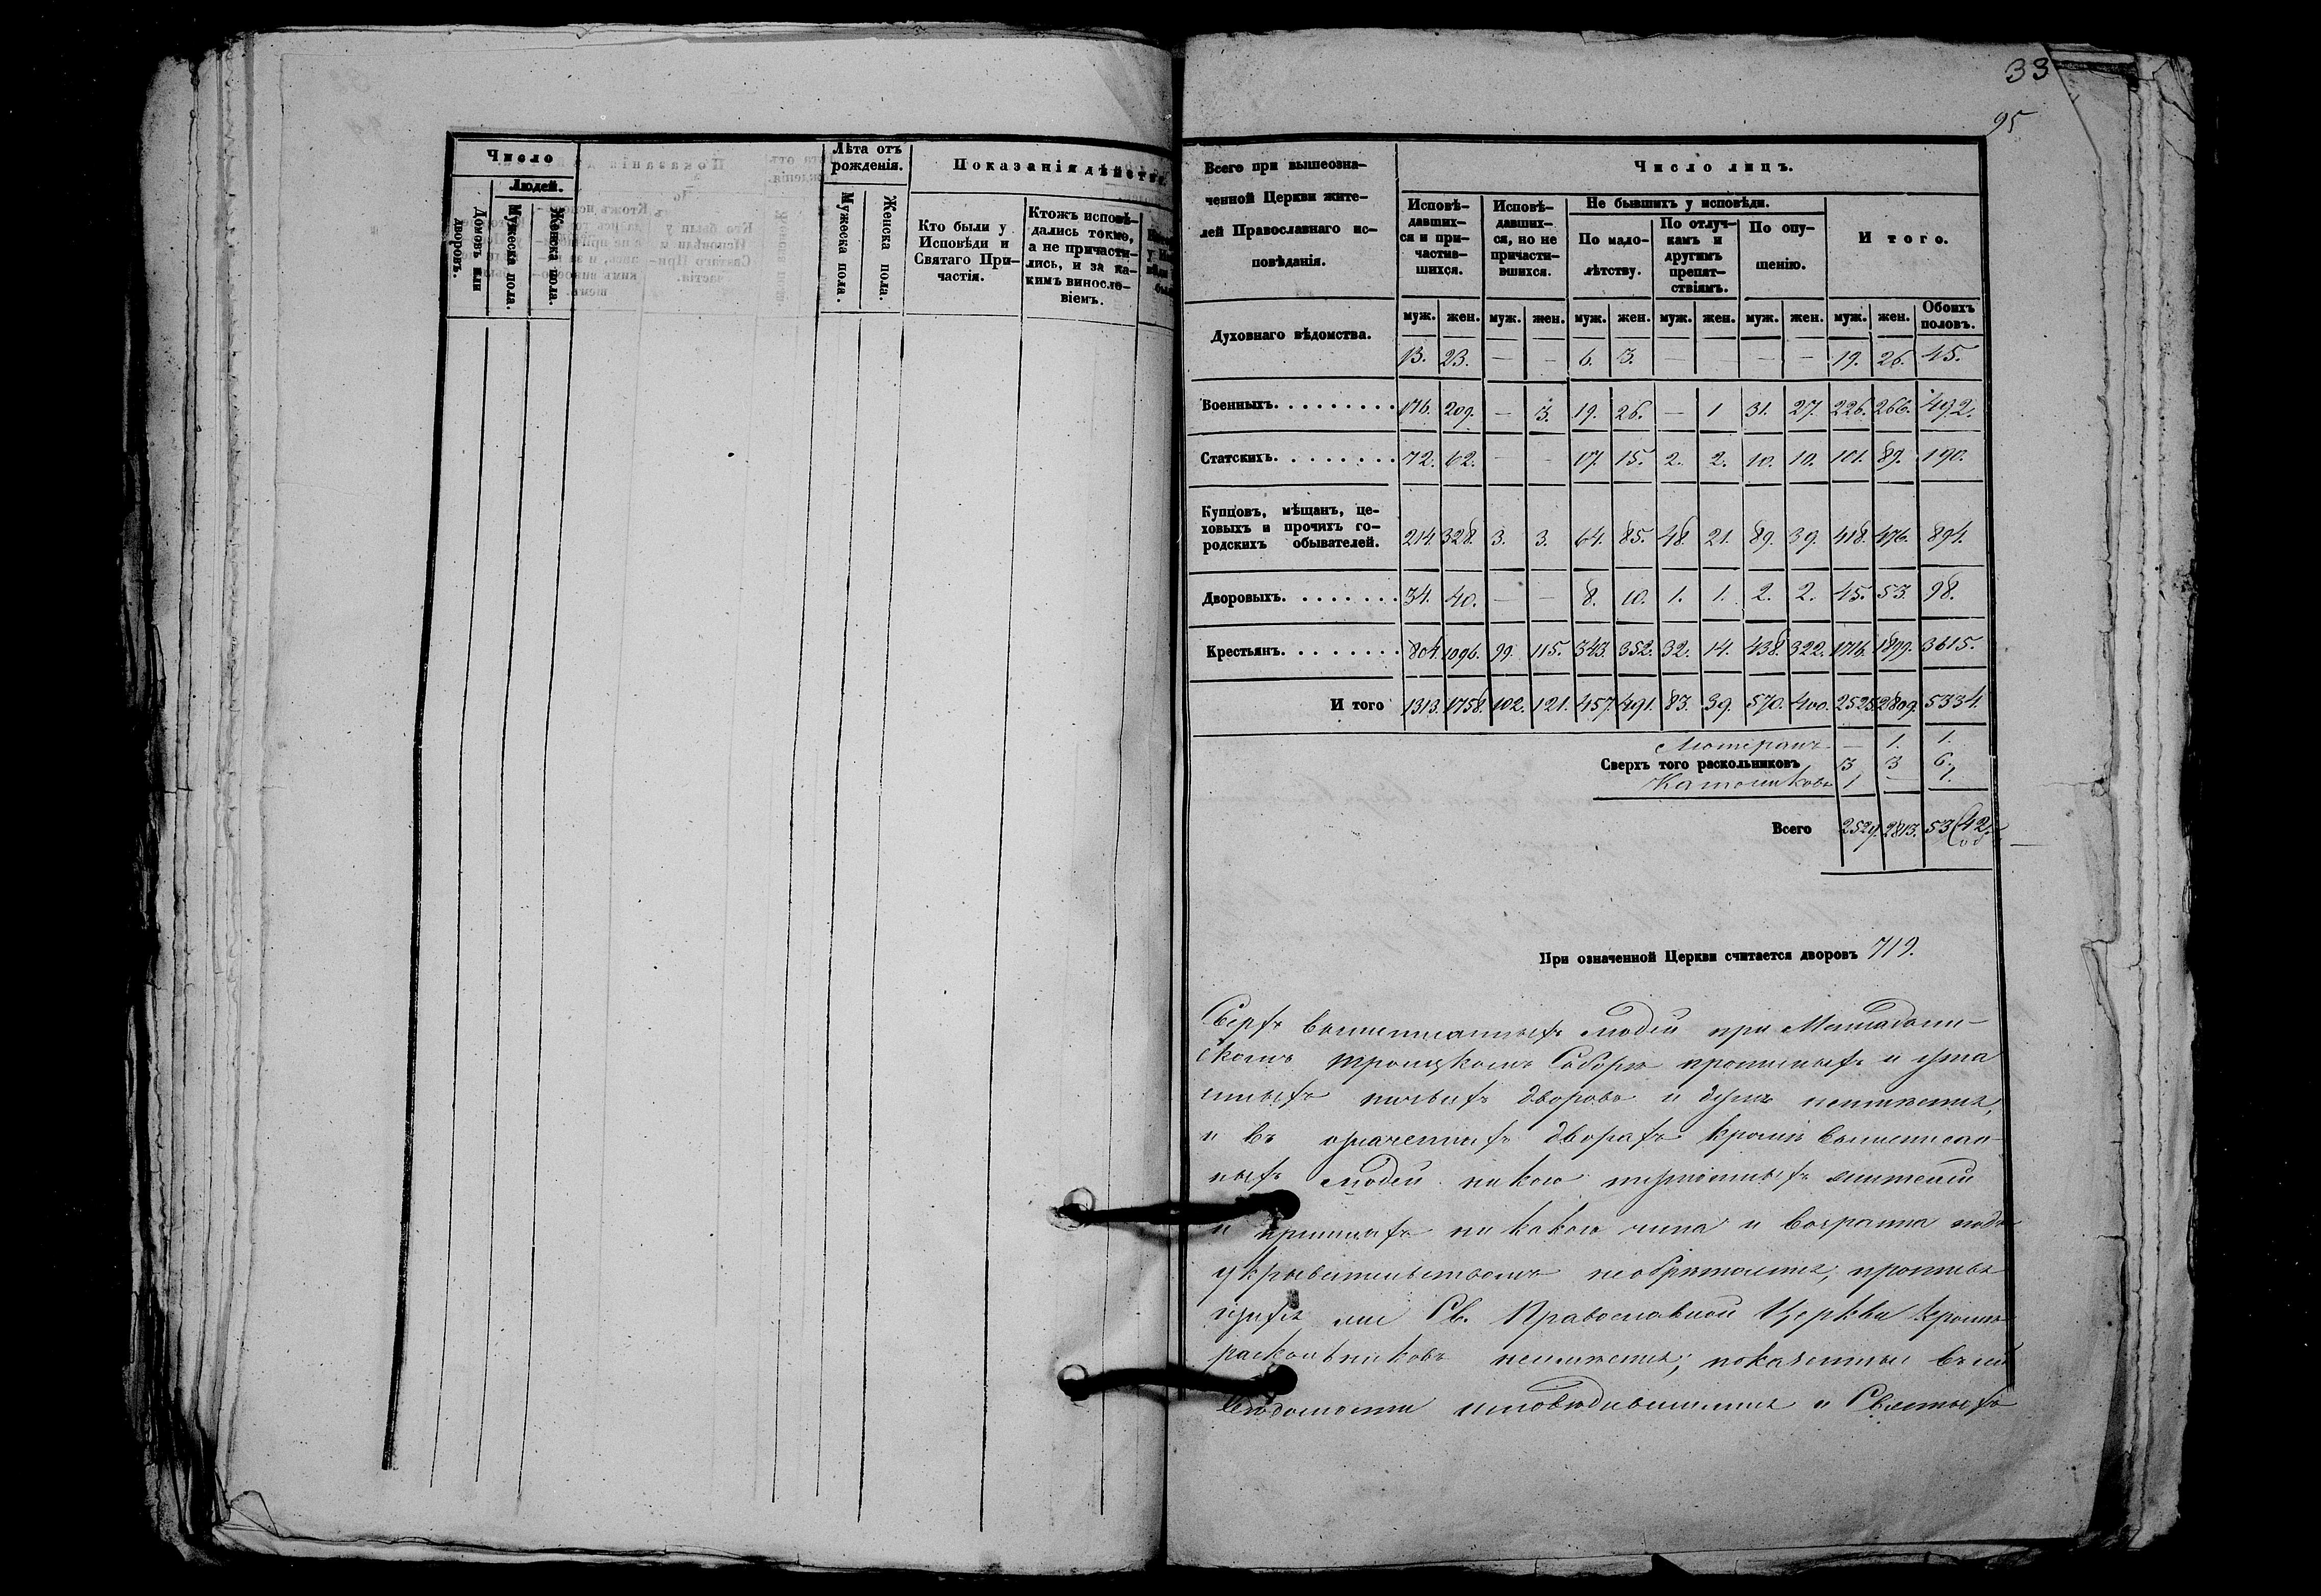 Число
Людей.
Домовъ или дворовъ.
Мужеска пола.
Женска пола.
Лѣта отъ рожденія.
Мужеска пола.
Женска пола.
Показанія дѣйства
Кто были у
Исповѣди и
Святаго При-
частія.
Ктожъ исповѣ-
дались токмо,
а не причасти-
лись, и за ка-
кимъ винosло-
віемъ.
33
95
Всего при вышеозна-
ченной Церкви жите-
лей Православнаго ис-
повѣданія.
Число лицъ.
Исповѣ-
давших-
ся и при-
частив-
шихся.
Исповѣ-
давших-
ся, но не
причасти-
вшихся.
Не бывшихъ у исповѣди.
По мало-
лѣтству.
По отлуч-
камъ и
другимъ
препят-
ствіямъ.
По опу-
щенію.
И того.
муж. жен. муж. жен. муж. жен. муж. жен. муж. жен. муж. жен. Обоихъ половъ.
Духовнаго вѣдомства. 13. 23. — — 6. 3. — — — — 19. 26. 45.
Военныхъ. 176. 209. — 3. 19. 26. — 1 31. 27. 226. 266. 492.
Статскихъ. 72. 62. — — 17. 15. 2. 2. 10. 10. 101. 89. 190.
Купцовъ, мѣщанъ, це-
ховыхъ и прочихъ го-
родскихъ обывателей. 214. 328. 3. 3. 64. 85. 48. 21. 89. 39. 418. 476. 894.
Дворовыхъ. 34. 40. — — 8. 10. 1. 1. 2. 2. 45. 53. 98.
Крестьянъ. 804. 1096. 99. 115. 343. 352. 32. 14. 438. 322. 1716. 1899. 3615.
И того 1313. 1758. 102. 121. 457. 491. 83. 39. 570. 400. 2525. 2809. 5334.
Лютеранъ — 1. 1.
Сверхъ того раскольниковъ 3 3 6.
Католиковъ 1 — 1.
Всего 2529. 2813. 5342.
При означенной Церкви считается дворовъ 719.
Сверхъ вышеписанныхъ людей при
скомъ Троицкомъ Соборѣ прописныхъ и ута
енныхъ ничьихъ дворовъ и душъ неимѣется,
и въ означенныхъ дворахъ кромѣ вышеписан-
ныхъ людей никого
и пришлыхъ никакого чина и возраста подъ
укрывательствомъ необрѣтается, противъ
нихъ Св. Православной Церкви кромѣ
раскольниковъ неимѣется; показанные въ сей
Вѣдомости исповѣдавшимися и Святыхъ